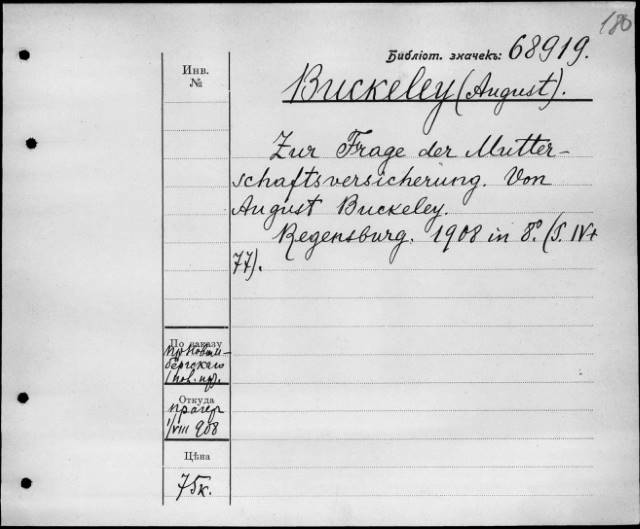 180
Библіот. значекъ: 68919.
Инв.
№
Buckeley (August).
Zur Frage der Mutter-
schaftsversicherung. Von
August Buckeley.
Regensburg. 1908 in 8º. (S. IV+
77).
По заказу
пр Новгм-
бергскаго
(нов. пр).
Откуда
Прагер
1/VIII 908
Цѣна
75к.